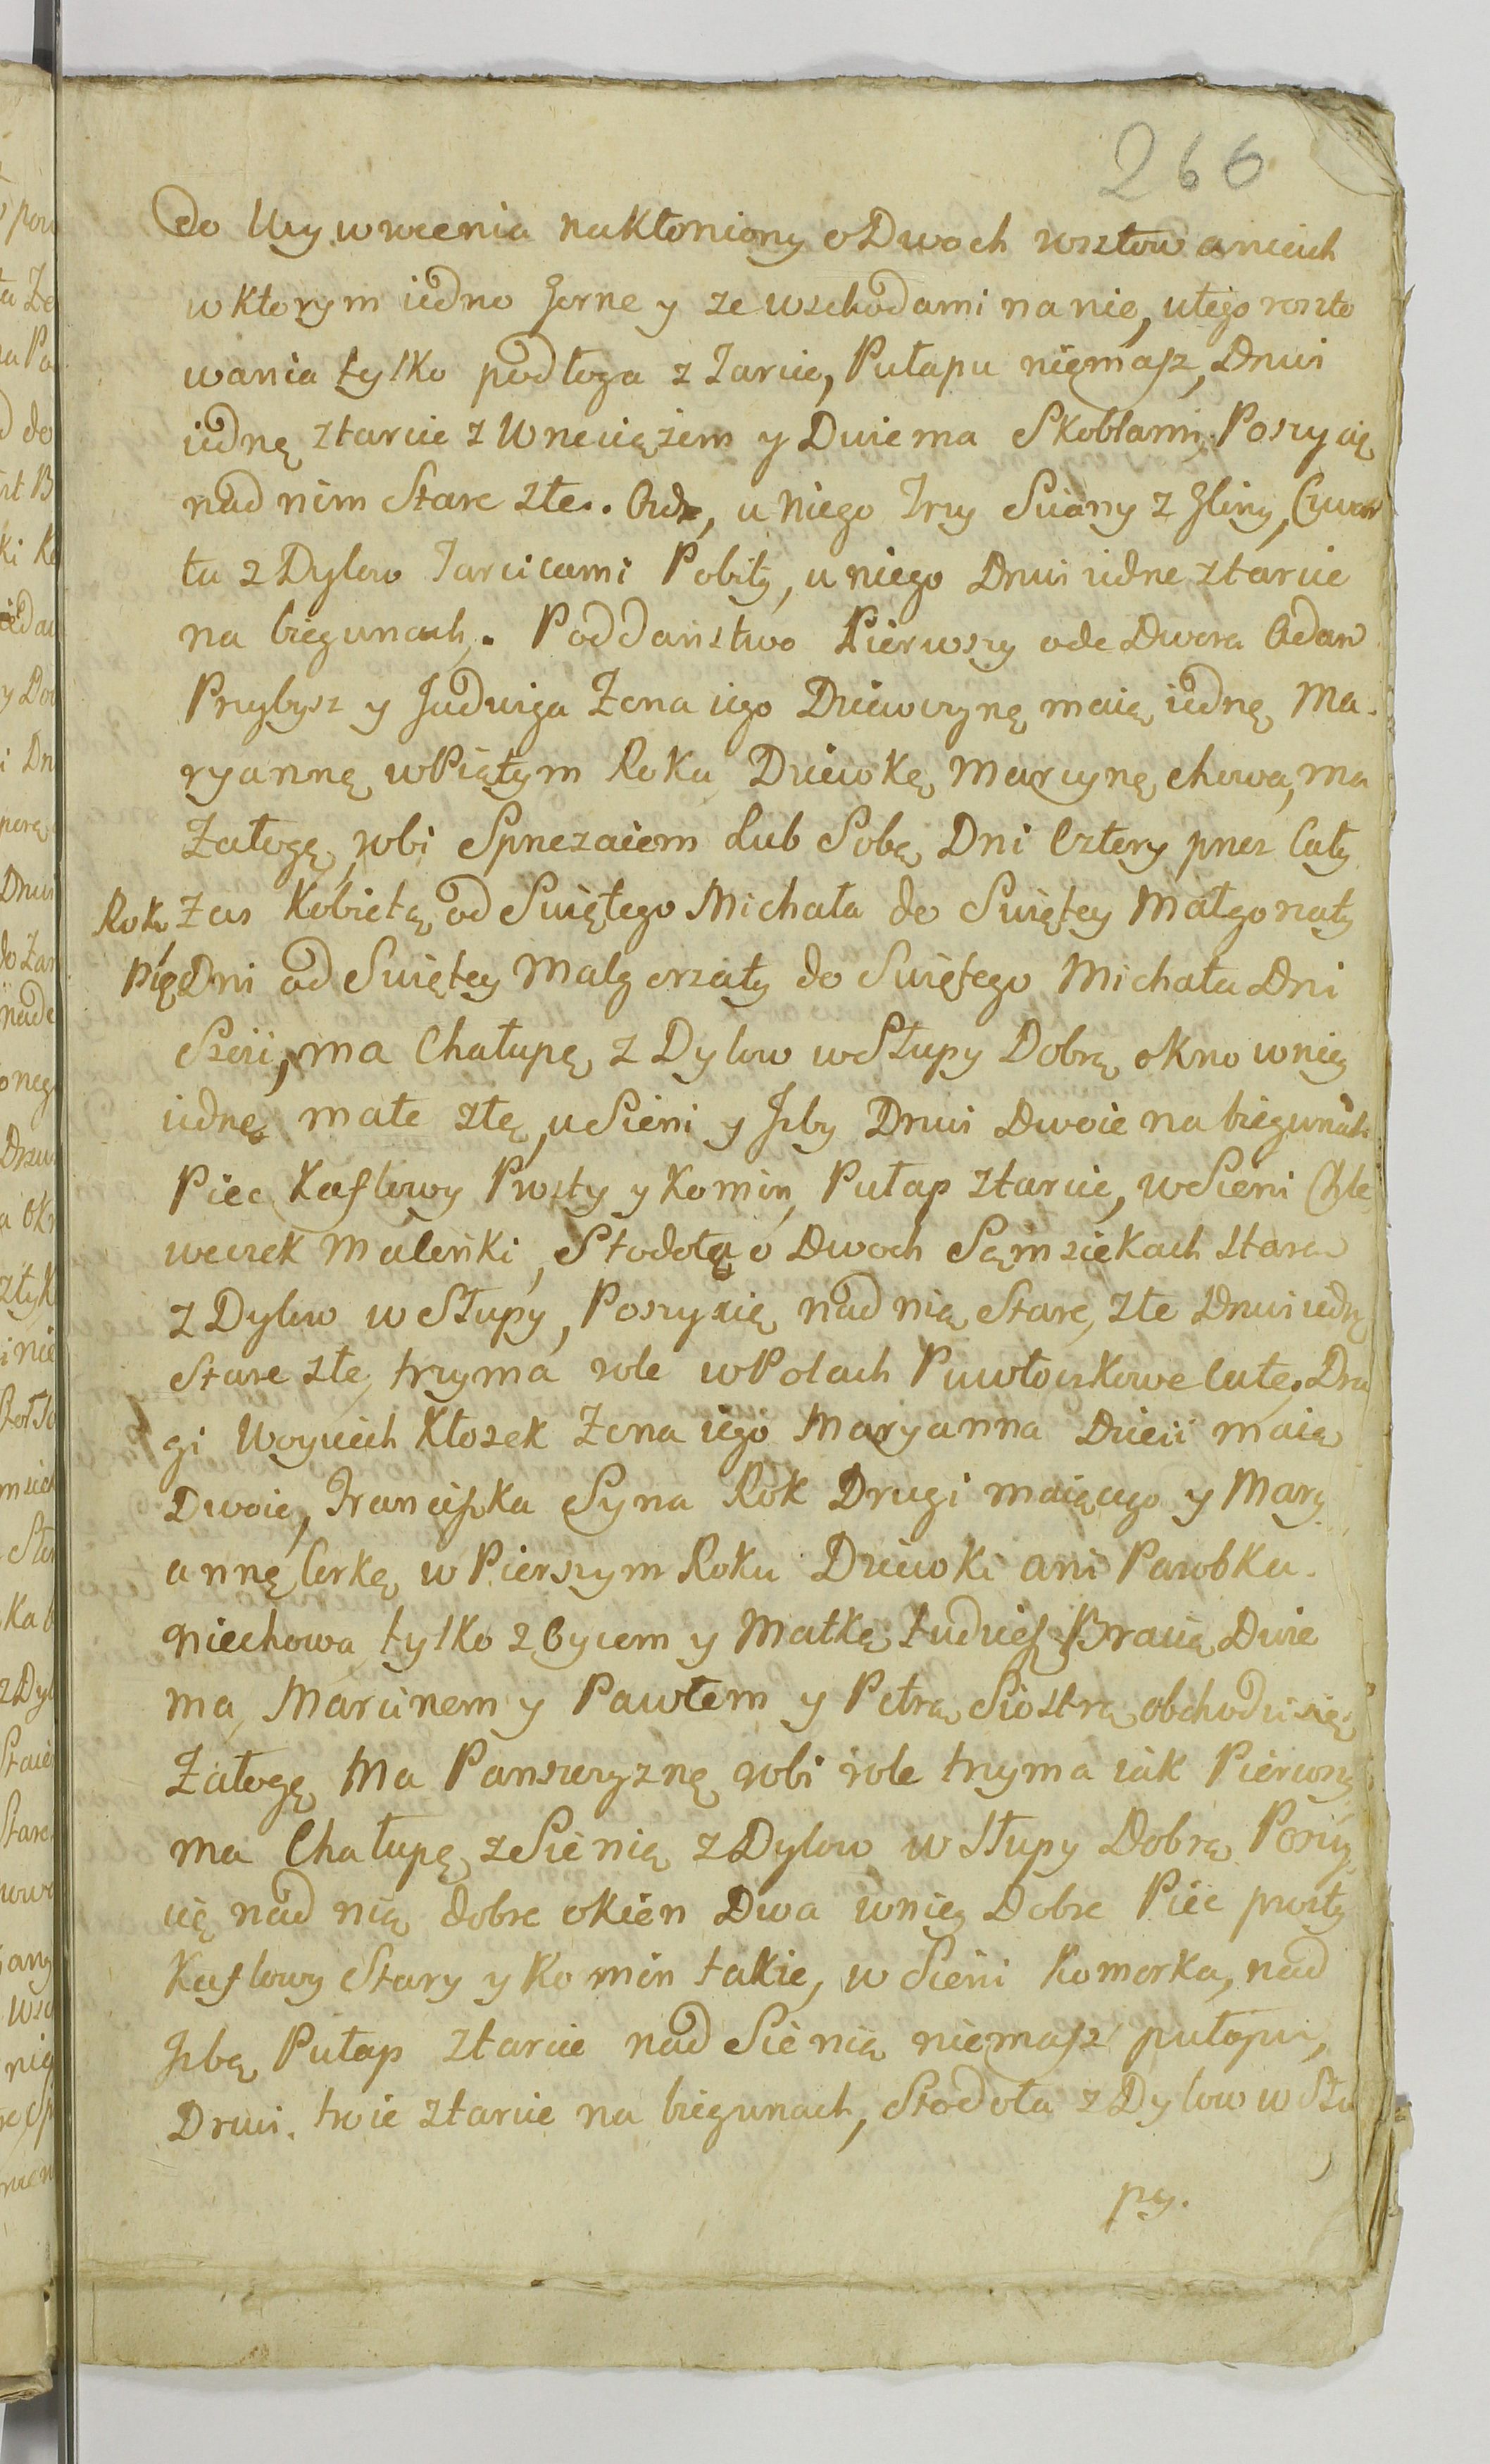 266
do Wywrcenia nakłoniony o Dwoch rosztowaniach
w ktorym iedno Gorne y ze wschodami na nie, u tego roszto
wania tylko podłoga z Tarcic, Pułapu niemasz, Drzwi
iedne z tarcic z Wrzeciążem y Dwiema Skoblami. Poszycię
nad nim Stare złe. u niego Trzy Sciany z Gliny, Czwar
ta z Dylow Tarcicami Pobity, u niego Drzwi iedne z tarcic
na biegunach. Poddaństwo Pierwszy ode Dwora Adam
Przybysz y Jadwiga Zona iego Dziewczynę maią iednę Ma-
ryannę w Piątym Roku Dziewkę Marcynę chowa, ma
Załogę, robi Sprzezaiem Lub Sobą Dni Cztery przez Cały
Rok Zas Kobietą od Swiętego Michała do Swiętey Małgorzaty
pięć Dni od Swiętey Małgorzaty do Swiętego Michała Dni
Szesć, ma Chałupę z Dylow w Słupy Dobrą okno w niey
iednę małe złe, u Sieni y Izby Drzwi Dwoie na biegunach
Piec Kaflowy Prosty y Komin, Pułap z tarcic, w Sieni Chle
weczek Maleńki, Stodołą o Dwoch Sąmsiekach stara
z Dylow w Słupy, Poszycię nad nią Stare, złe Drzwi iedne
Stare złe, trzyma role w Polach Pawłoszkowe całe. Dru
gi Woyciech Kłosek Zona iego Maryanna Dzieci maią
Dwoie, Franciszka Syna Rok Drugi maiącego y Mary
annę Corkę w Pierszym Roku Dziewki ani Parobka
niechowa tylko z Oycem y Matką Tudziesz Bracią Dwie
ma, Marcinem y Pawłem y Petra Siostrą obchodzi się
Załogę Ma Panszczyznę robi role trzyma iak Pierwszy
ma Chałupę z Sienią z Dylow w Słupy Dobrą Poszy
cię nad nią dobre okien Dwa w niey Dobre Piec prosty
Kaflowy Stary y Komin takie, w Sieni Komorka, nad
Izbą Pułap z tarcic nad Sienią niemasz pułapu,
Drzwi troie z tarcic na biegunach, Stodoła z Dylow w Słu
py.